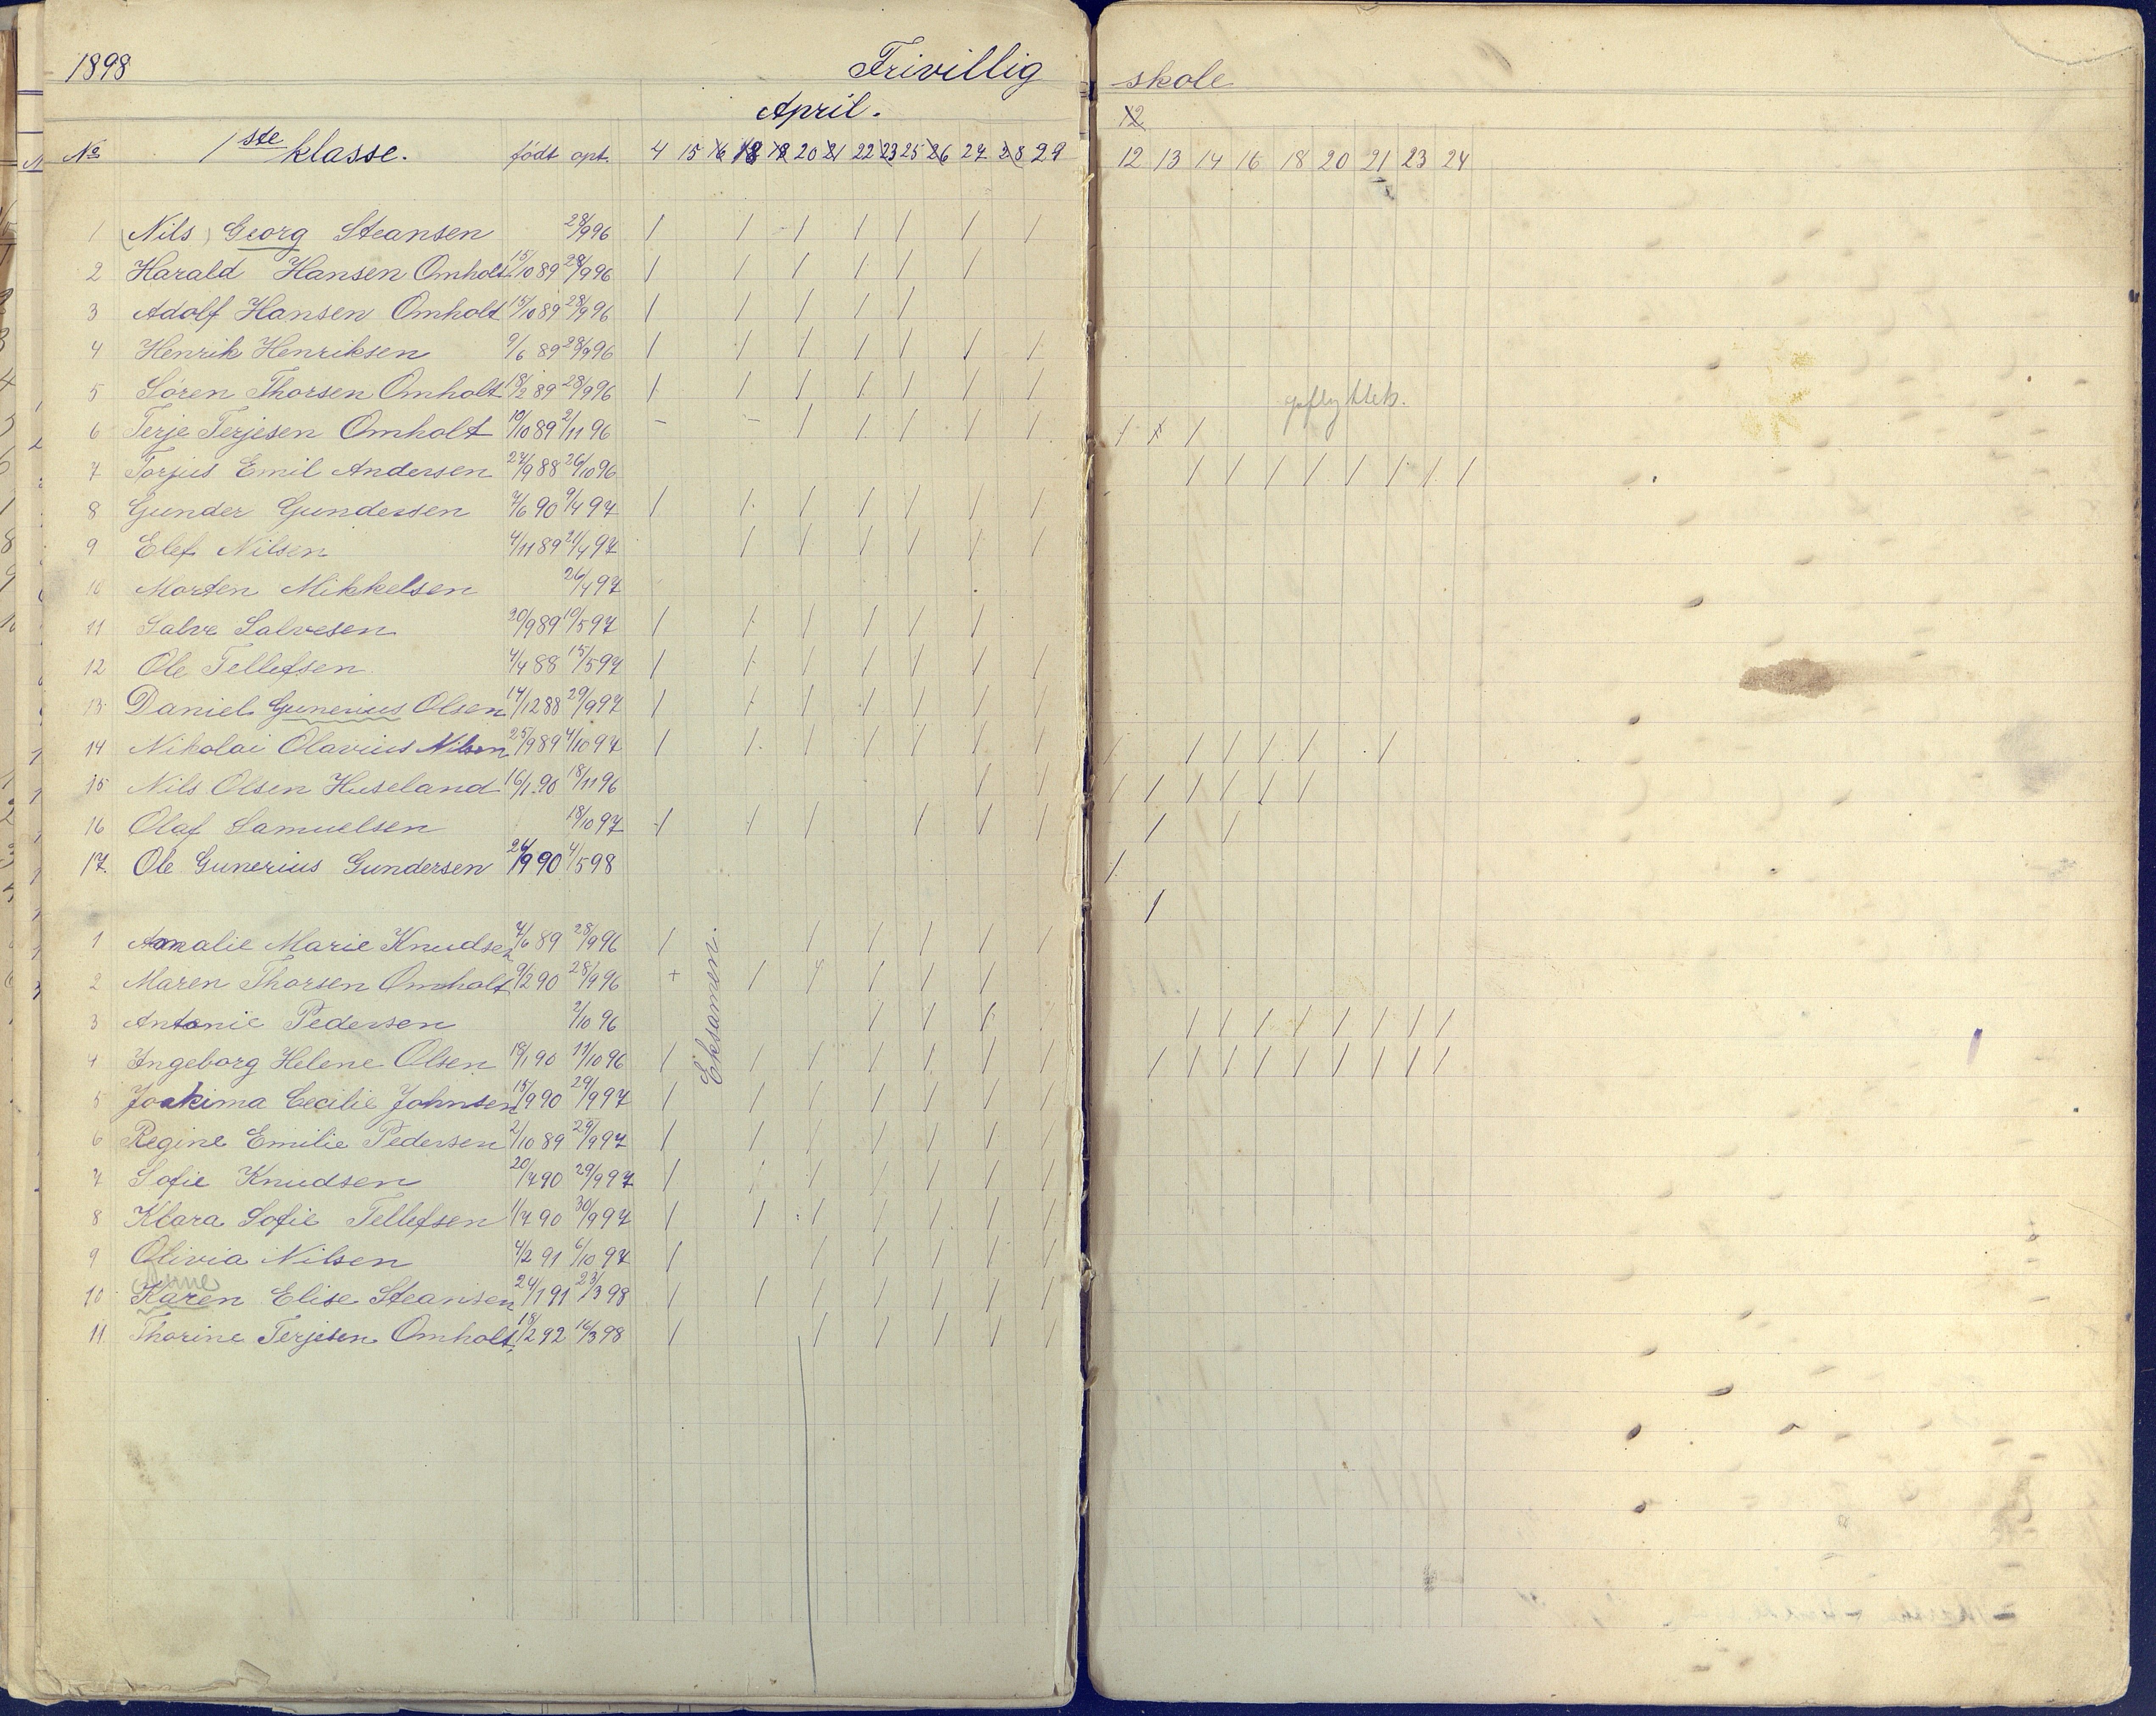 1898 Frivillig skole
April.
12
No 1ste klasse. født opt. 4 15 16 18 19 20 21 22 23 25 26 27 28 29 12 13 14 16 18 20 21 23 24
1 (Nils) Georg Steansen 28/9 96
2 Harald Hansen Omholt 15/10 89 28/9 96
3 Adolf Hansen Omholt 15/10 89 28/9 96
4 Henrik Henriksen 9/6 89 28/9 96
5 Søren Thorsen Omholt 18/2 89 28/9 96
6 Terje Terjesen Omholt 10/10 89 2/11 96
7 Torjus Emil Andersen 27/9 88 26/10 96
8 Gunder Gundersen 7/6 90 9/4 97
9 Elef Nilsen 4/11 89 21/4 97
10 Morten Mikkelsen 26/4 97
11 Salve Salvesen 20/9 89 10/5 97
12 Ole Tellefsen 4/4 88 15/5 97
13 Daniel Gunerius Olsen 14/12 88 29/9 97
14 Nikolai Olavius Nilsen 25/9 89 4/10 97
15 Nils Olsen Huseland 16/1 90 18/11 96
16 Olaf Samuelsen 18/10 97
17. Ole Gunerius Gundersen 26/9 90 4/5 98
1 Amalie Marie Knudsen 7/6 89 28/9 96
2 Maren Thorsen Omholt 9/2 90 28/9 96
3 Antonie Pedersen 2/10 96
4 Ingeborg Helene Olsen 19/1 90 11/10 96
5 Joakima Cecilie Johnsen 15/9 90 29/9 97
6 Regine Emilie Pedersen 2/10 89 29/9 97
7 Sofie Knudsen 20/7 90 29/9 97
8 Klara Sofie Tellefsen 1/7 90 30/9 97
9 Olivia Nilsen 4/2 91 6/10 97
Anne
10 Karen Elise Steansen 24/1 91 23/3 98
11. Thorine Terjesen Omholt 18/2 92 16/3 98
Eksamen.